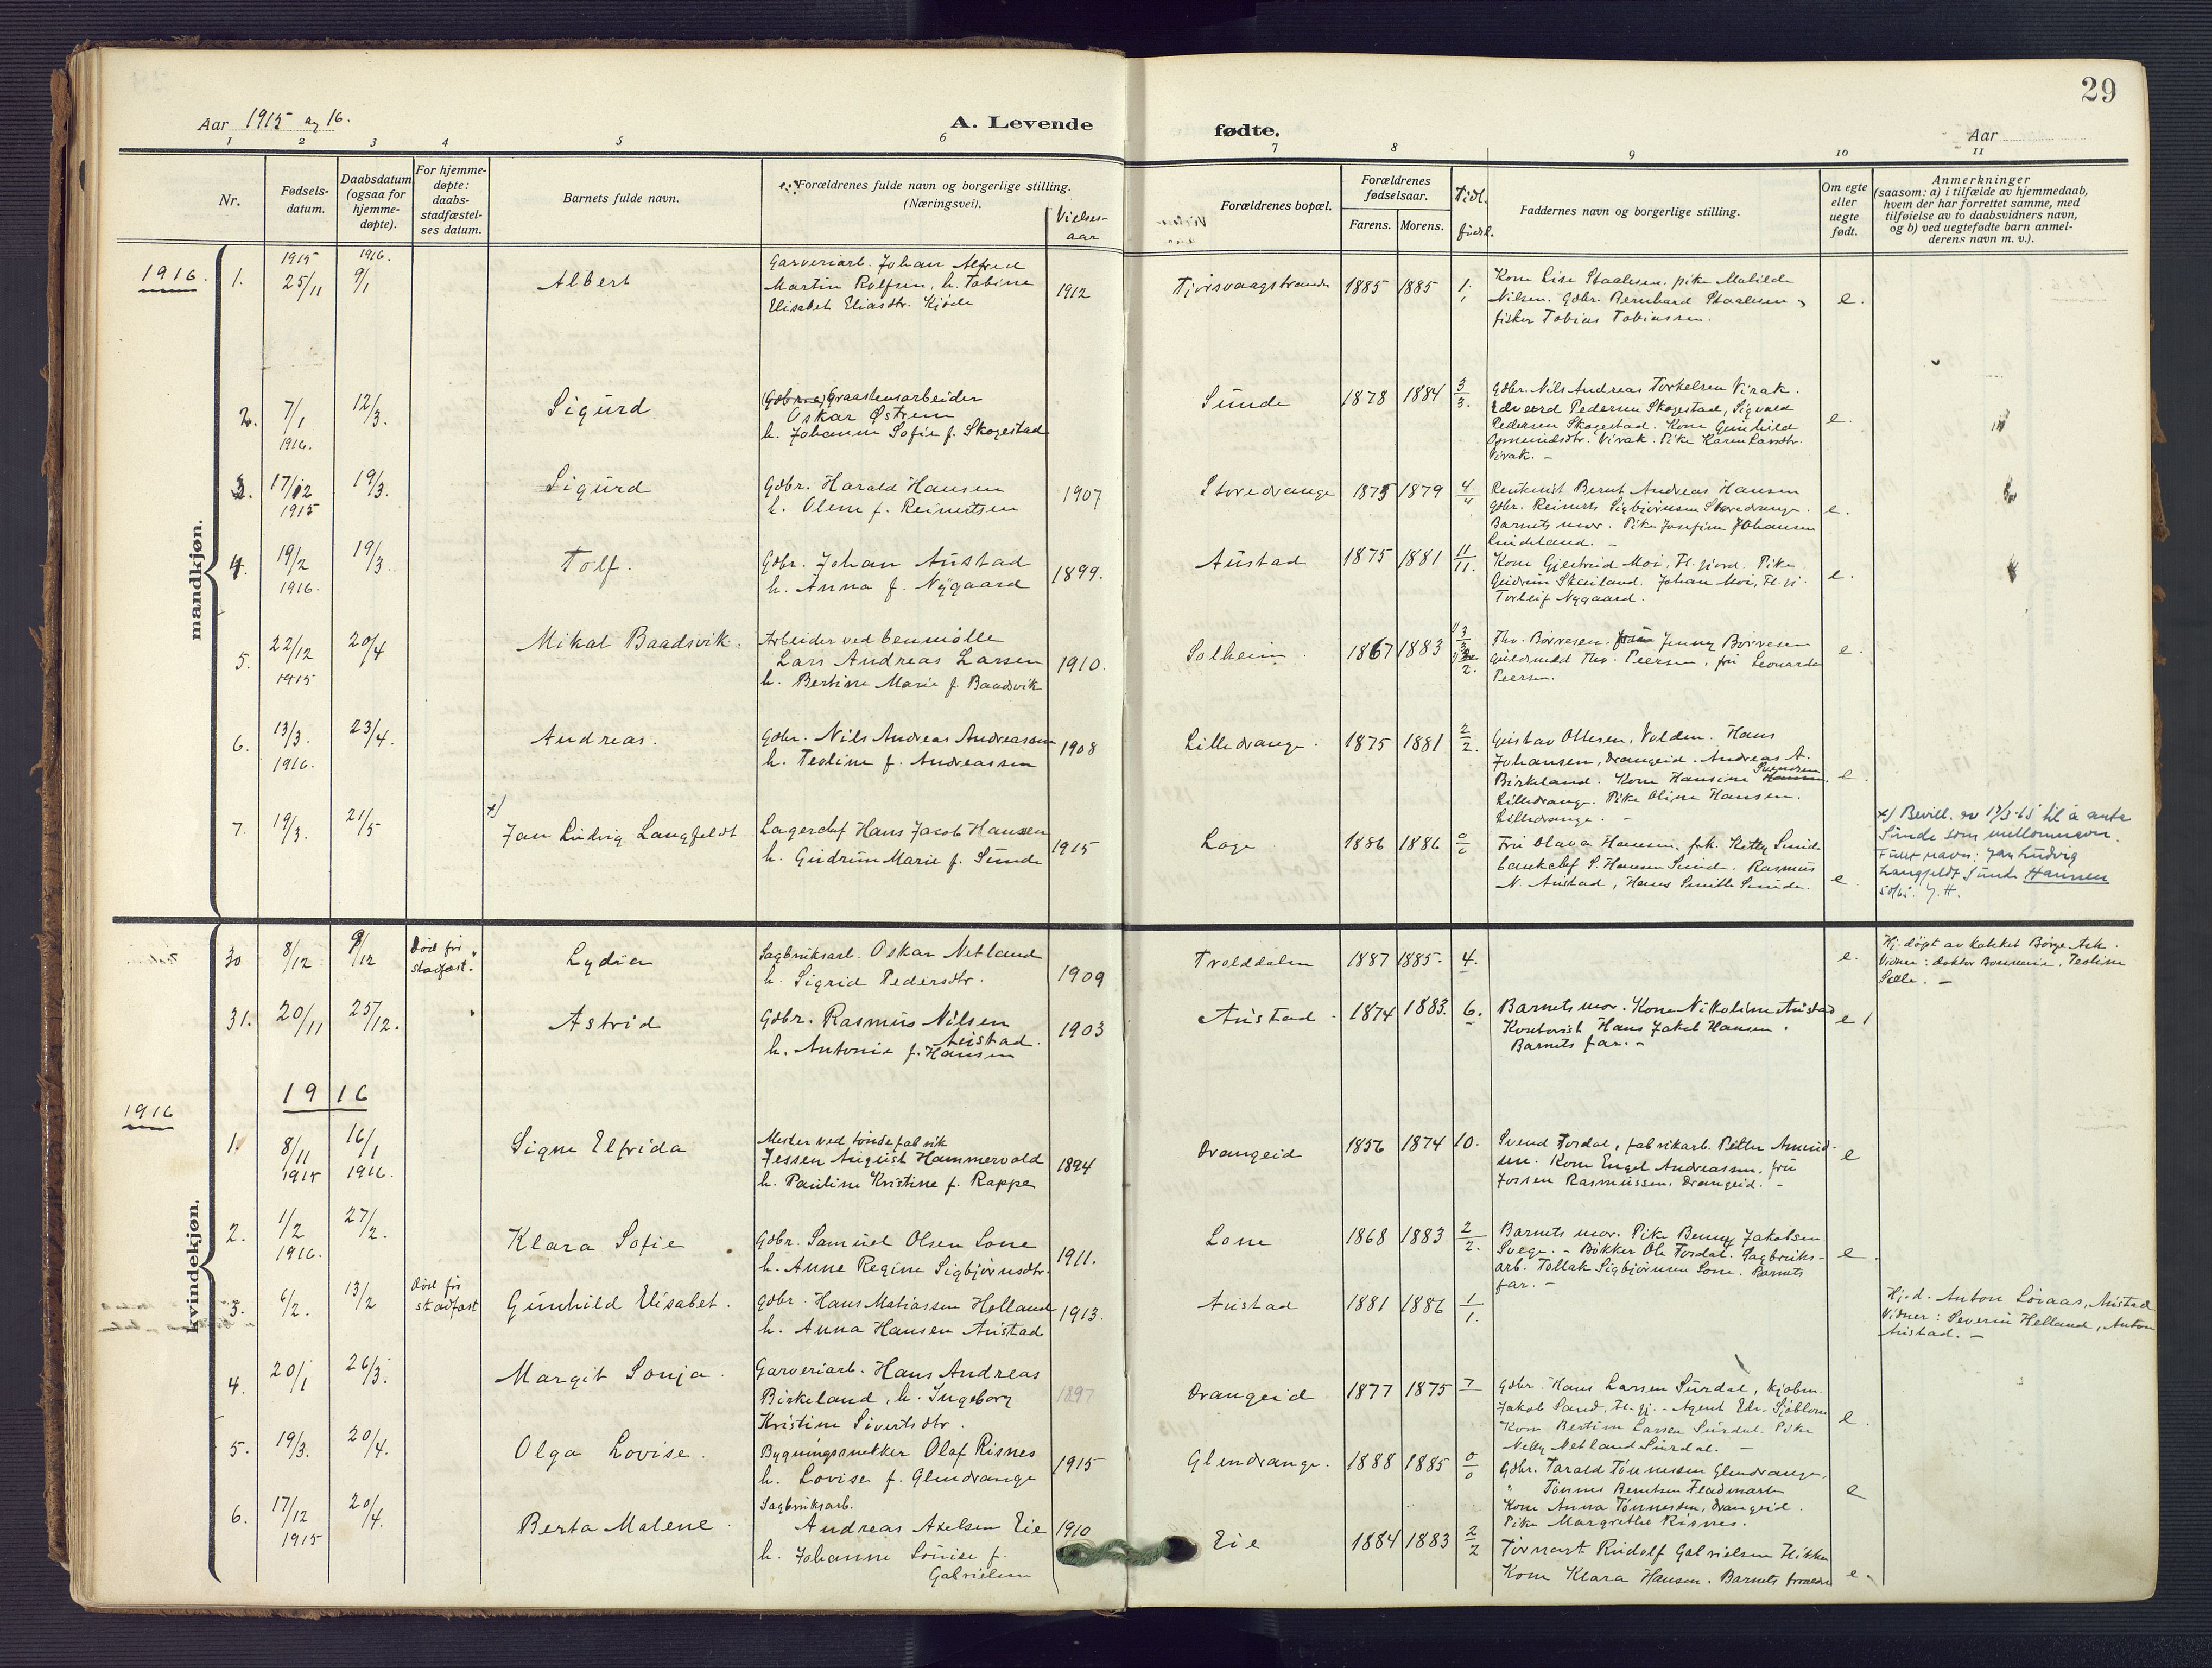 29
Aar 1915 og 16.
A. Levende
fødte.
Aar
1 2 3 4 5 6 7 8 9 10 11
Nr.
Fødsels-
datum.
Daabsdatum
(ogsaa for
hjemme-
døpte).
For hjemme-
døpte:
daabs-
stadfæstel-
ses datum.
Barnets fulde navn.
Forældrenes fulde navn og borgerlige stilling.
(Næringsvei).
Vielses-
aar
Forældrenes bopæl.
Forældrenes
fødselsaar.
Farens. Morens.
Tidl.
fødsl.
Faddernes navn og borgerlige stilling.
Om egte
eller
uegte
født.
Anmerkninger
(saasom: a) i tilfælde av hjemmedaab,
hvem der har forrettet samme, med
tilføielse av to daabsvidners navn,
og b) ved uegtefødte barn anmel-
derens navn m. v.).
mandkjøn.
1916.
1. 1915 25/11 1916. 9/1 Albert
Garveriarb. Johan Alfred
Martin Rolfsen, h. Tobine
Elisabet Eliasdtr. Kjøde
1912 1885 1885 1. e.
Kone Lise Staalesen. pike Matilde
Nilsen. Gdbr. Bernhard Staalesen
fisker Tobias Tobiassen.
2. 7/1 1916. 12/3. Sigurd
(Gdbr.) Graastensarbeider
Oskar Østrem
h. Johanne Sofie f. Skogestad
Sunde 1878 1884 3/3. e.
Gdbr. Nils Andreas Torkelsen Virak.
Edvard Pedersen Skogestad, Sigvald
Pedersen Skogestad. Kone Gunhild
Omundsdtr. Virak. Pike Karen Larsdtr.
Virak. -
3. 17/12 1915 19/3. Sigurd
Gdbr. Harald Hansen
h. Olene f. Reinertsen
1907 Storedrange 1875 1879 4/4 e.
Bernt Andreas Hansen
Gdbr. Reinert Sigbjørnsen Storedrange.
Barnets mor. Pike Josefine Johansen
Lindeland. -
4. 19/2 1916. 19/3. Tolf.
Gdbr. Johan Austad
h. Anna f. Nygaard
1899. Austad 1875 1881 11/11. e.
Kone Gjertrud Moi, Fl. fjord. Pike
Gudrun Skeiland. Johan Moi, Fl. fj.
Torleif Nygaard.
5. 22/12 1915 20/4 Mikal Baadsvik.
Arbeider ved benmølle
Lars Andreas Larsen
h. Bertine Marie f. Baadsvik
1910. Solheim. 1867 1883 e.
Thv. Børresen. Jenny Børresen
Guldsmed Thv. Peersen, fru Leonarda
Peersen.
6. 13/3. 1916. 23/4. Andreas.
Gdbr. Nils Andreas Andreassen
h. Teoline f. Andreassen
1908 Lilledrange. 1875 1881 2/2. e.
Gustav Ollesen, Volden. Hans
Johansen, Drangeid. Andreas A.
Birkeland. Kone Hansine Svendsen
Lilledrange. Pike Oline Hansen.
Lilledrange. -
7. 19/3. 21/5 x) Jan Ludvig Langfeldt
Lagerchef Hans Jacob Hansen
h. Gudrun Marie f. Sunde
1915 Loge. 1886 1886 0/0 e.
Fru Olava Hansen, frk. Kitty Sunde
bankchef S. Hansen Sunde. Rasmus
N. Austad, Hans Smith Sunde.
x) Bevill. av 17/3-65 til å anta
Sunde som mellomnavn.
Fullt navn: Jan Ludvig
Langfeldt Sunde Hansen
kvindekjøn.
30 8/12 9/12 Død før
stadfæst. Lydia
Sagbruksarb. Oskar Netland
h. Sigrid Pedersdtr.
1909 Trolddalen 1887 1885. 4. e.
Hj. døpt av Børge Ask.
Vidner: doktor Teoline
31. 20/11 25/12. Astrid
Gdbr. Rasmus Nilsen
Austad.
h. Antonie f. Hansen
1903 Austad. 1874 1883. 6. e
Barnets mor. Kone Nikoline Austad
Kontorist Hans Jakob Hansen.
Barnets far. -
1916
1916
1. 8/11 1915 16/1 1916. Signe Elfrida
Mester ved tøndefabrik
Jessen August Hammervold
h. Pauline Kristine f. Rappe
1894 Drangeid 1856 1874 10. e
Svend Tordal, fabrikarb. Petter Amund-
sen. Kone Engel Andreassen, fru
Rasmussen. Drangeid. -
2. 1/2 1916. 27/2. Klara Sofie
Gdbr. Samuel Olsen Lone
h. Anne Regine Sigbjørnsdtr.
1911. Lone 1868 1883 2/2. e.
Barnets mor. Pike Benny Jakobsen
Svege. - Bøkker Ole Tordal. Sagbruks-
arb. Tollak Sigbjørnsen Lone. Barnets
far. -
3. 6/2. 13/2 Død før
stadfæst Gunhild Elisabet.
Gdbr. Hans Matiassen Helland
h. Anna Hansen Austad
1913. Austad 1881 1886 1/1.
Hj.d. Anton Austad
Vidner: Severin Helland, Anton
Austad. -
4. 20/1 26/3. Margit Sonja.
Garveriarb. Hans Andreas
Birkeland, h. Ingeborg
Kristine Sivertsdtr.
1897 Drangeid 1877 1875 7 e.
Gdbr. Hans Larsen Surdal, kjøbm.
Jakob Sand, Fl. fj. - Agent Edv. Sjöblom
Kone Bertine Larsen Surdal. Pike
Nelly Netland Surdal. -
5. 19/3. 20/4. Olga Lovise.
Bygningssnekker Olaf Risnes
h. Lovise f. Glendrange
1915 Glendrange. 1888 1885 0/0 e
Gdbr. Tarald Tønnessen Glendrange,
" Tønnes Berntsen Fladmark
Kone Anna Tønnessen, Drangeid.
Pike Margrethe Risnes.
6. 17/12 1915 20/4. Berta Malene.
Sagbruksarb.
Andreas Axelsen Eie
h. Johanne Louise f.
Gabrielsen
1910 Eie 1884 1883 2/2 e.
Rudolf Gabrielsen
Kone Klara Hansen. Barnets forældre